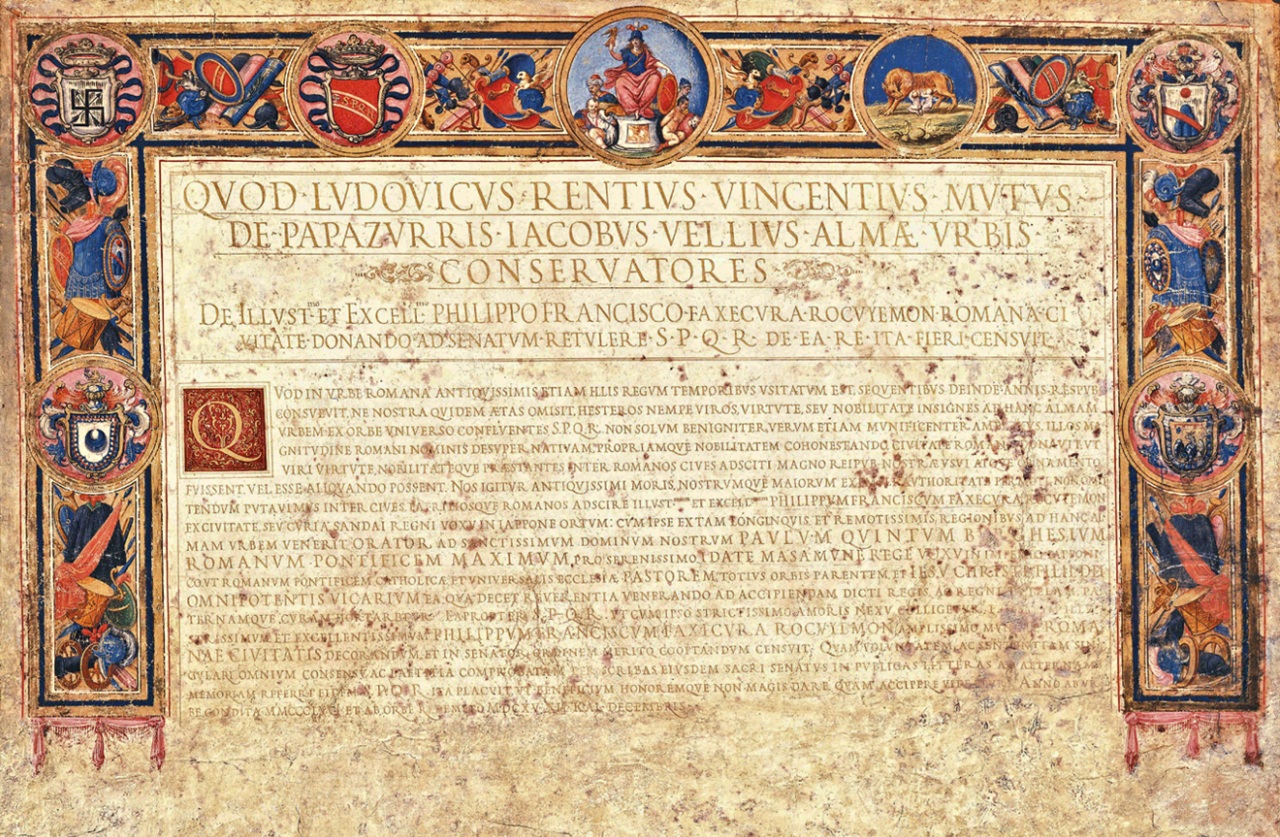 S.P.Q.R.
QVOD·LVDOVICVS·RENTIVS·VINCENTIVS·MVTVS·
DE·PAPAZVRRIS·IACOBVS·VELLIVS·ALMÆ·VRBIS
CONSERVATORES
DE ILLVST.mo ET EXCELL.mo PHILIPPO FRANCISCO·FAXECVRA·ROCVYEMON·ROMANA·CI
VITATE·DONANDO·AD·SENATVM·RETVLERE·S·P·Q·R·DE·EA·RE·ITA·FIERI·CENSVIT
QVOD IN VRBE ROMANA ANTIQVISSIMIS ETIAM ILLIS REGVM TEMPORIBVS VSITATVM EST, SEQVENTIBVS DEINDE ANNIS RESPVB
CONSVEVIT, NE NOSTRA QVIDEM ÆTAS OMISIT, HESTEROS NEMPE VIROS, VIRTVTE, SEV NOBILITATE INSIGNES AD HANC ALMAM
VRBEM EX ORBE VNIVERSO CONFLVENTES S.P.Q.R. NON SOLVM BENIGNITER, VERVM ETIAM MVNIFICENTER ILLOS MA
GNITVDINE ROMANI NOMINIS DESVPER, NATIVAM, PROPRIAMQVE NOBILITATEM COHONESTANDO, CIVITATE ROMANA DONAVIT VT
VIRI VIRTVTE, NOBILITATEQVE PRÆSTANTES INTER ROMANOS CIVES ADSCITI MAGNO REIPVB. NOSTRÆ VSVI ORNAMENTO
FVISSENT, VEL ESSE ALIQVANDO POSSENT. NOS IGITVR ANTIQVISSIMI MORIS, NOSTRVMQVE MAIORVM AVTHORITATE
TENDVM PVTAVIMVS INTER CIVES, PATRITIOSQVE ROMANOS ADSCIRE ILLVST.mum ET EXCELL. PHILIPPVM FRANCISCVM FAXECVRA ROCVYEMON
EX CIVITATE SEV CVRIA SANDAI REGNI VOXV IN IAPPONE ORTVM: CVM IPSE EX TAM LONGINQVIS, ET REMOTISSIMIS REGIONIBVS AD HANC AL
MAM VRBEM VENERIT ORATOR AD SANCTISSIMVM DOMINVM NOSTRVM PAVLVM QVINTVM BVRGHESIVM
ROMANVM PONTIFICEM MAXIMVM, PRO SERENISSIMO IDATE MASAMVNE REGE VOXV IN IMPERIO IAPPONI
CO VT ROMANVM PONTIFICEM CATHOLICÆ ET VNIVERSALIS ECCLESIÆ PASTOREM TOTIVS ORBIS PARENTEM, ET IESV CHRISTI FILII DEI
OMNIPOTENTIS VICARIVM EA QVA DECET REVERENTIA VENERANDO AD ACCIPIENDAM DICTI REGIS, AC REGNI PA
TERNAMQVE CVRAM HORTARETVR. EAPROPTER S·P·Q·R· VT CVM IPSO STRICTISSIMO AMORIS NEXV COLLIGETVR
ET EXCELLENTISSIMVM PHILIPPVM FRANCISCVM FAXICVRA ROCVYEMON AMPLISSIMO ROMA
NAE CIVITATIS DECORANDVM, ET IN SENATOR. ORDINEM MERITO COOPTANDVM CENSVIT. QVAM VOLVNTATEM, AC SENTENTIAM SIN
GVLARI OMNIVM CONSENSV, AC LÆTITIA COMPROBATAM PER SCRIBAS EIVSDEM SACRI SENATVS IN PVBLICAS LITTERAS
MEMORIAM REFERRI EIDEM S·P·Q·R· ITA PLACVIT, VT BENEFICIVM HONOREMQVE NON MAGIS DARE QVAM ACCIPERE ANNO AB VR
BE CONDITA ET AB ORBE MDCXV XII KAL. DECEMBRIS